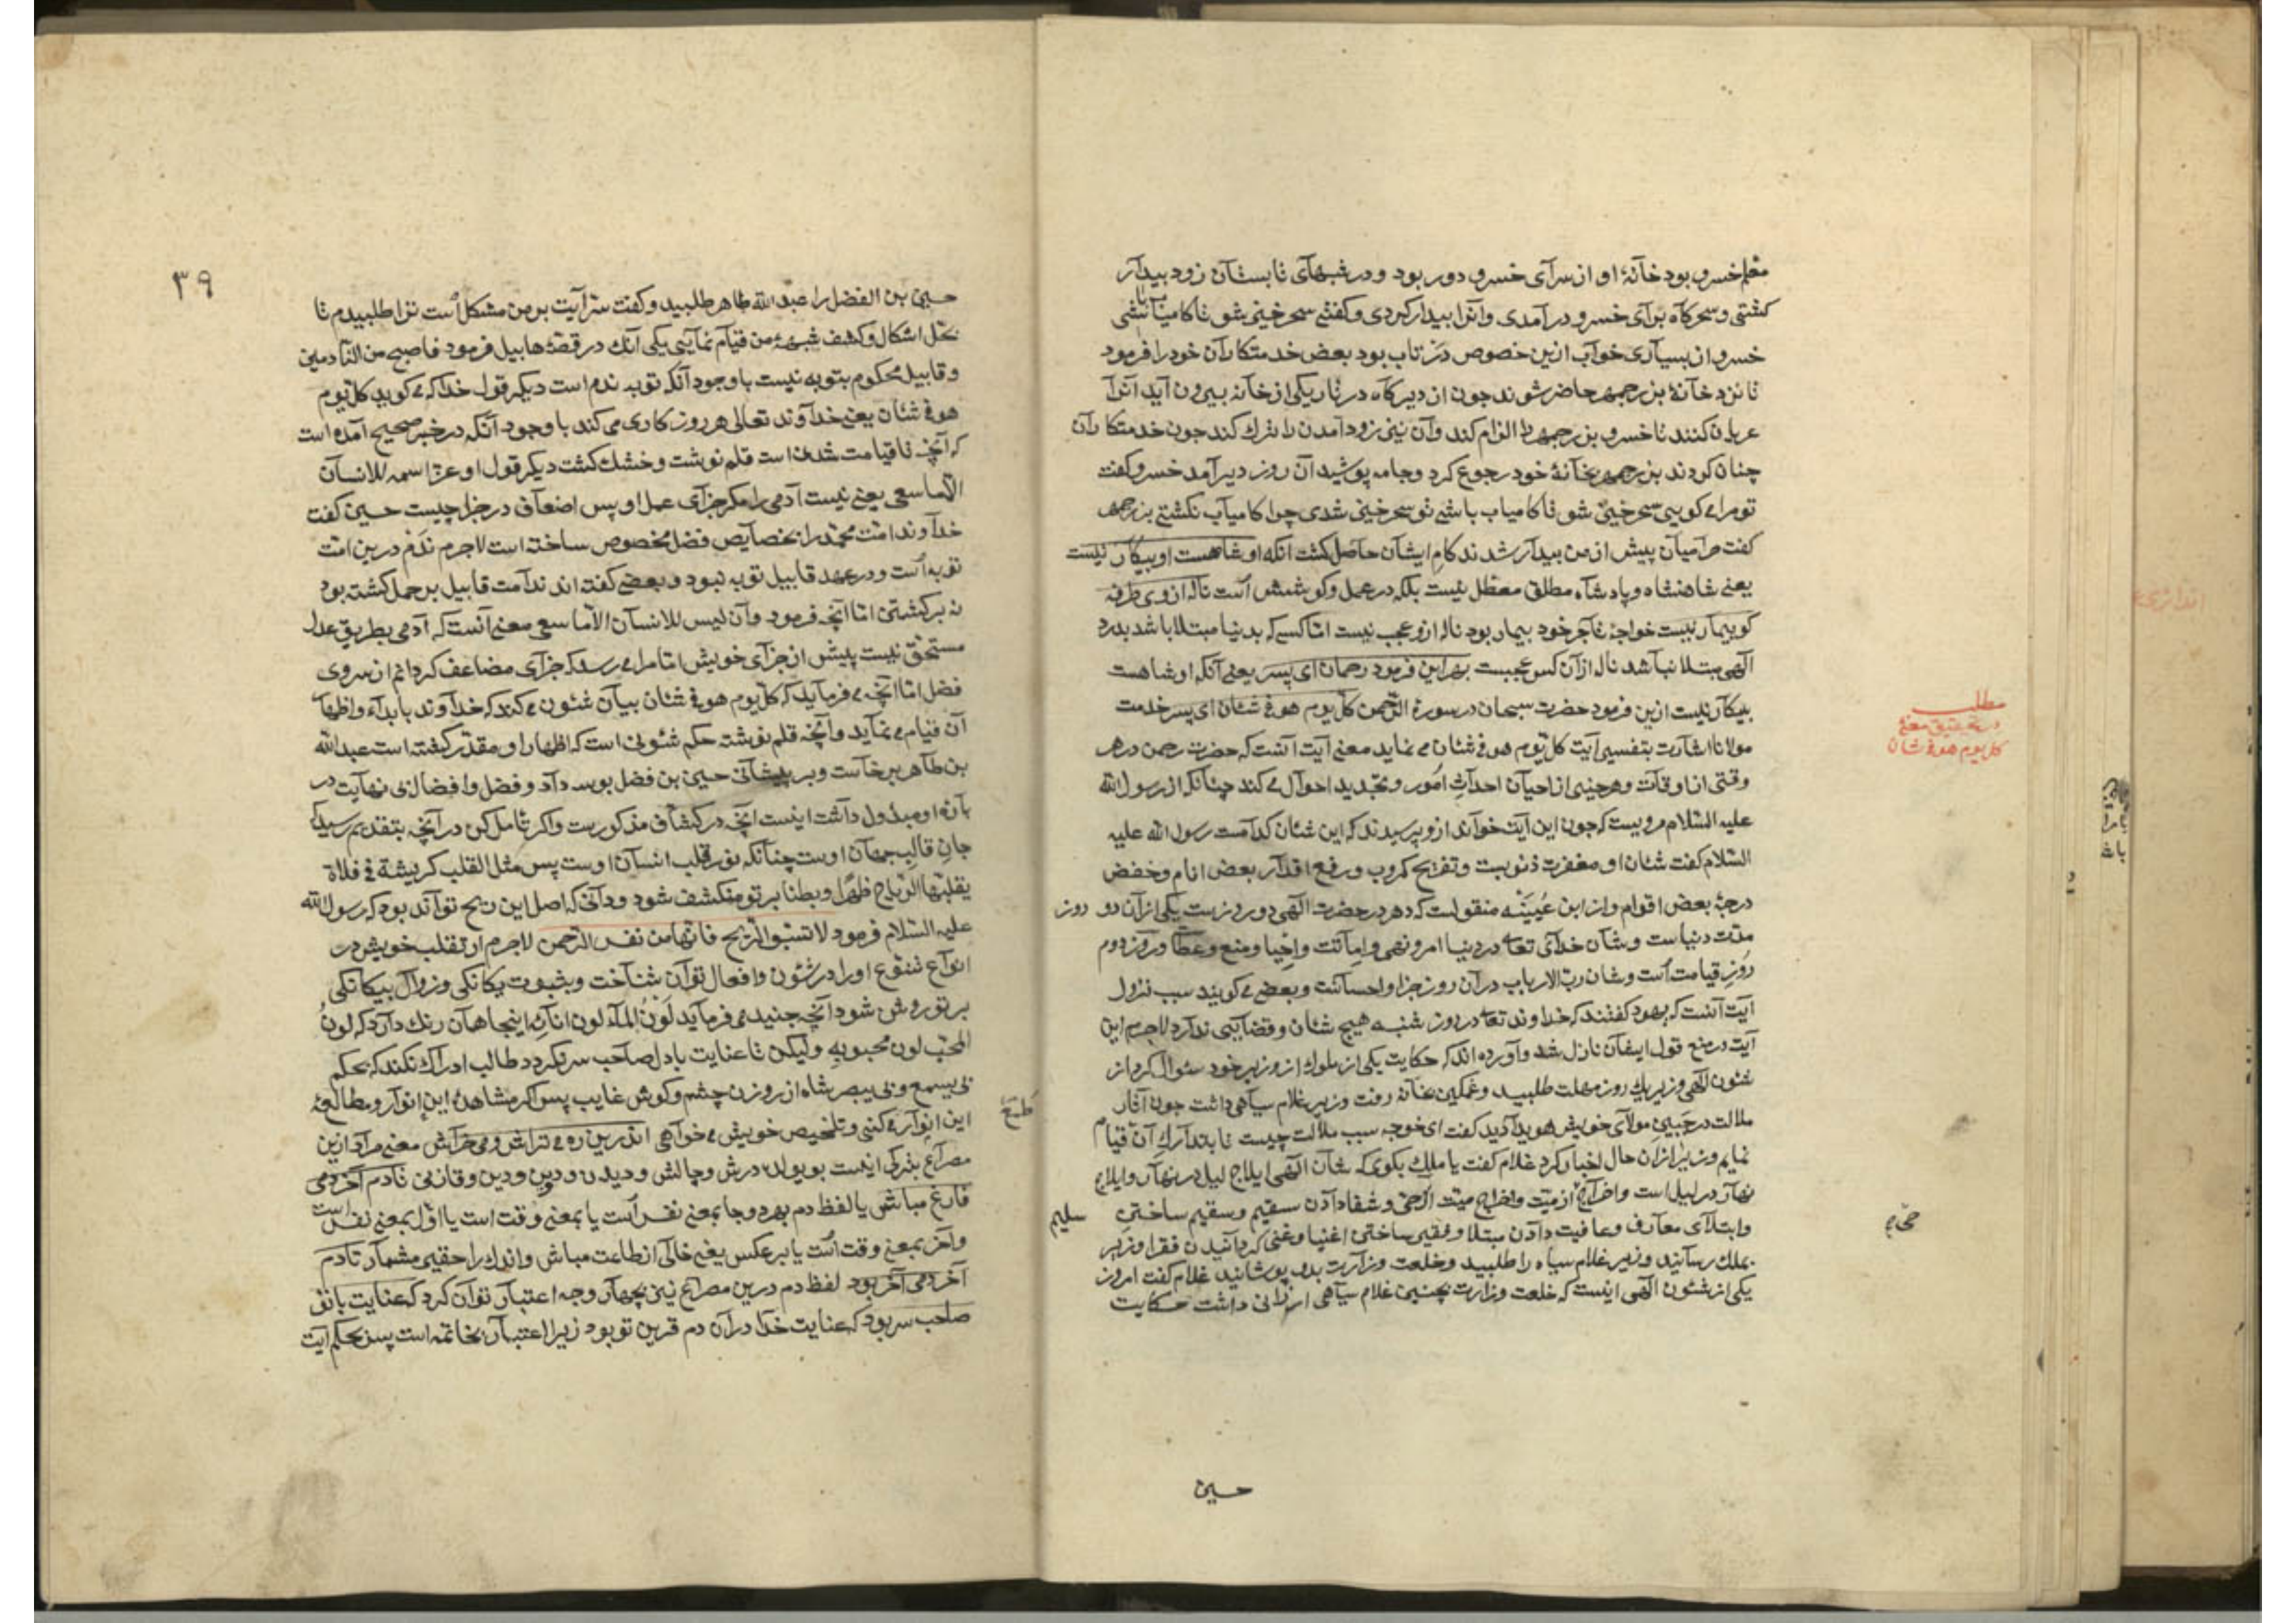 معلم خسرو بود خآنهٔ او از سرآی خسرو دور بود و در شبهآی تابستآن زود بیدآر
کشتی و سحرکآه برآی خسرو در آمدی وآنرا بیدار کردی و کفتی سحر خیز شو تا کامیاب باشی
خسرو از بسیآری خوآب ازین خصوص در تاب بود بعض خدمتکارآن خود را فرمود
تا نزد خآنهٔ بزرجمهر حاضر شوند جون از دیرکآه در تاریکی از خآنه بیرون آید آنرا
عریان کنند تا خسرو بزرجمهر را الزام کند وآن نیز زود آمدن را ترك کند جون خدمتکارآن
چنان کردند بزرجمهر بخآنهٔ خود رجوع کرد وجامه پوشید آن روز دیر آمد خسرو کفت
تو مرا می کویی سحر خیز شو تا کامیاب باشی تو سحر خیز شدی چرا کامیآب نکشتی بزرجمهر
کفت حرآمیان پیش از من بیدآر شدند کام ایشآن حاصل کشت آنکه او شاهست او بیکار نیست
یعنی شاهنشاه و پادشآه مطلق معطل نیست بلکه در عمل وکوشش آست ناله از وی طرفه
کو بیمآر نیست خواجهٔ تآجر خود بیمار بود ناله ازو عجب نیست امّا کسی که بدنیا مبتلا باشد بدرد
الهی مبتلا نبآشد ناله ازآن کس عجبست بهر این فرمود رحمان ای پسر یعنی آنکه او شاهست
بیکآر نیست ازین فرمود حضرت سبحان در سورهٔ الرّحمن کلّ یوم هو فی شئان ای پسر خدمت
مولانا اشآرت بتفسیر آیت کلّ یوم هو فی شئان می نماید معنی آیت آنست که حضرت رحمن در هر
وقتی از اوقآت و هر حینی از احیآن احداثِ اُمور و تجدید احوال می کند چنآنکه از رسول الله
علیه السّلام مرویست که جون این آیت خوآند ازو پرسیدند که این شئان کدآمست رسول الله علیه
السّلام کفت شئان او مغفرت ذنوبست وتفریح کروب ورفع اقدآر بعض انام وخفض
درجهٔ بعض اقوام واز ابن عُیَیْنَه منقولست که دهر در حضرت الهی دو روزست یکی ازآن دو روز
مدّت دنیاست وشآن خدآی تعاله در دنیا امر و نهی واِمآتت واِحْیا ومنع وعطآ وروز دوم
روزِ قیامت آست وشان ربّ الارباب درآن روز جزا واحسآنست وبعضی می کویند سبب نزول
آیت آنست که یهود کفتند که خداوند تعاله در روز شنبه هیچ شئان وقضآیی ندآرد لاجرم این
آیت در منع قول ایشآن نازل شد وآورده اند که حکایت یکی از ملوك از وزیر خود سئوال کرد از
شئون الهی وزیر یك روز مهلت طلبید وغمکین بخآنه رفت وزیر غلام سیآهی داشت جون آثار
ملالت در جَبینِ مولآی خویش هویدآ دید کفت ای خوجه سبب ملالت چیست تا بتدآركِ آن قیام
نمایم وزیر ازآن حال اخبآر کرد غلام کفت یا ملك بکوی که شآن الهی ایلاج لیل در نهآر وایلاج
نهآر در لیل است واخراج حی از میّت واخراج میّت از حیّ وشفا دآدن سقیم وسقیم ساختن سلیم
وابتلآی معآف وعافیت دآدن مبتلا وفقیر ساختن اغنیا وغنی کردآنیدن فقرا وزیر
بملك رسآنید وزیر غلام سیاه را طلبید وخلعت وزآرت بدو پوشانید غلام کفت امروز
یکی از شئون الهی اینست که خلعت وزارت بچنین غلام سیآهی ارزآنی داشت حکایت
مطلب
در تحقیق معنی
کل یوم هو فی شان
حی
حسین
٣٩
حسین بن الفضل را عبد الله طاهر طلبید وکفت سه آیت بر من مشکل آست ترا طلبیدم تا
بحل اشکال وکشف شبههٔ من قیآم نمآیی یکی آنك در قصّهٔ هابیل فرمود فاصبح من النّآدمین
وقابیل محکوم بتوبه نیست باوجود آنکه توبه ندم است دیکر قول خدا که می کوید کلّ یوم
هو فی شئان یعنی خدآوند تعالی هر روز کاری می کند باوجود آنکه در خبر صحیح آمده است
که آنچه تا قیامت شدنی است قلم نوشت وخشك کشت دیکر قول او عزّ اسمه للانسآن
الّا ما سعی یعنی نیست آدمی را مکر جزآی عمل او پس اضعآف در جزا چیست حسین کفت
خدآوند امّت محمّد را بخصآیص فضل مخصوص ساخته است لاجرم نَدَم درین امّت
توبه آست ودر عهد قابیل توبه نبود وبعضی کفته اند ندآمت قابیل بر حمل کشته بود
نه بر کشتن امّا آنچه فرمود وآن لیس للانسآن الّا ما سعی معنی آنست که آدمی بطریق عدل
مستحق نیست پیش از جزآی خویش امّا مرا می رسد که جزآی مضاعف کردآنم از روی
فضل امّا آنچه می فرمآید که کلّ یوم هو فی شئان بیآن شئون می کند که خدآوند بابدآء واظهآر
آن قیام می نمآید وآنچه قلم نوشته حکم شئونی است که اظهار او مقدّر کشته است عبد الله
بن طآهر برخآست وبر پیشآنی حسین بن فضل بوسه دآد وفضل وافضال بی نهآیت در
بآرهٔ او مبذول دآشت اینست آنچه در کشّآف مذکورست واکر تامّل کنی درآنچه بتقدیم رسید که
جان قالب جهآن اوست چنآنکه نور قلب انسآن اوست پس مثل القلب کریشة فی فلاة
یقلّبها الریاح ظهرًا وبطنا بر تو منکشف شود ودآنی که اصل این ریح توآند بود که رسول الله
علیه السّلام فرمود لا تسبّوا الرّیح فانّها من نفس الرّحمن لاجرم از تقلب خویش در
انوآع تنوّع اورا در شئون وافعال توآن شنآخت وبثبوت یکانکی وزوآل بیکآنکی
بر تو روشن شود آنچه جنید می فرمآید لَوْنُ المآء لون انآئه اینجا همآن رنك دآرد که لونُ
المحبّ لون محبوبه ولیکن تا عنایت با دل صآحب سر نکردد طالب ادرآك نکند که بحکم
بی یسمع وبی یبصر شاه از روزن چشم وکوش غایب پس اکر مشاهدهٔ این انوآر ومطالعهٔ
این انوآر می کنی وتلخیص خویش می خوآهی اندرین ره می تراش ومی خرآش معنی مرآد ازین
مصرآع بترکی اینست بویولده درش وچالش ودیدن ودین ودین وقازنی تادم آخر دمی
فآرغ مبآش یا لفظ دم بهر دو جا بمعنی نفس آست یا بمعنی وقت است یا اوّل بمعنی نفس است
وآخر بمعنی وقت آست یا بر عکس یعنی خآلی از طاعت مباش واندك را حقیر مشمآر تا دم
آخر دمی آخر بود لفظ دم درین مصرآع نیز بچهآر وجه اعتبآر توآن کرد که عنایت با تو
صآحب سر بود که عنایت خدآ درآن دم قرین تو بود زیرا اعتبآر بخاتمه است پس بحکم آیت